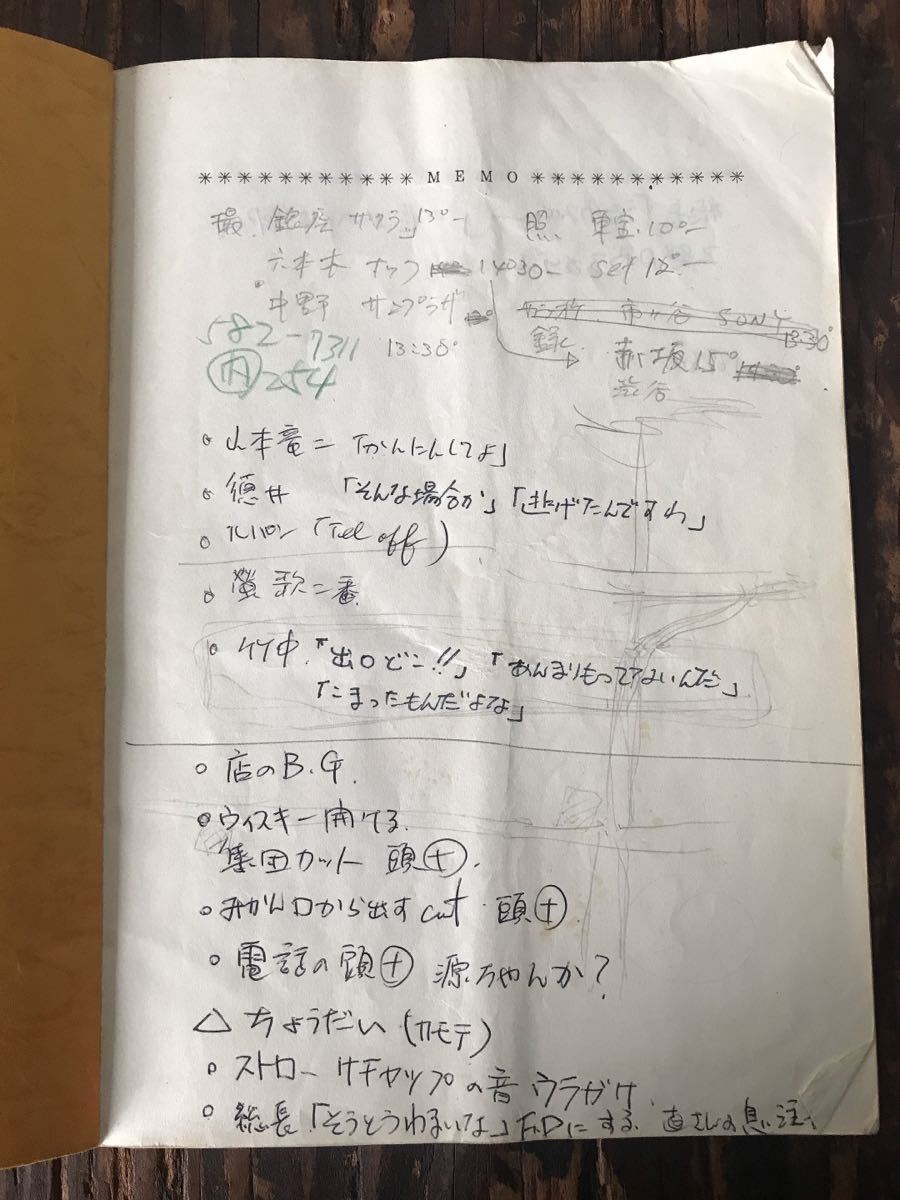 *********** MEMO ***********
撮 銀座 サクラ 13°ー 照 10°ー
六本木 ナック 14°30ー set 12°ー
中野 サンプラザ
市ヶ谷 SONY 13:30°
582-7311 13:30° 録 赤坂 15°
内 254 渋谷
山本竜二「かんにんしてよ」
徳井 「そんな場合か」「逃げたんですわ」
ルパン (Tel off)
螢歌二番
竹中「出口どこ!!」「あんまりもってないんだ」
「こまったもんだよな」
店のB.G.
ウィスキー開ける
集団カット 頭⊕.
みかん口から出すcut 頭⊕
電話の頭⊕ 源ちゃんか?
△ ちょうだい (カモテ)
ストロー ケチャップの音 ウラガケ
総長「そうとうわるいな」F.Dにする 直さんの息 注